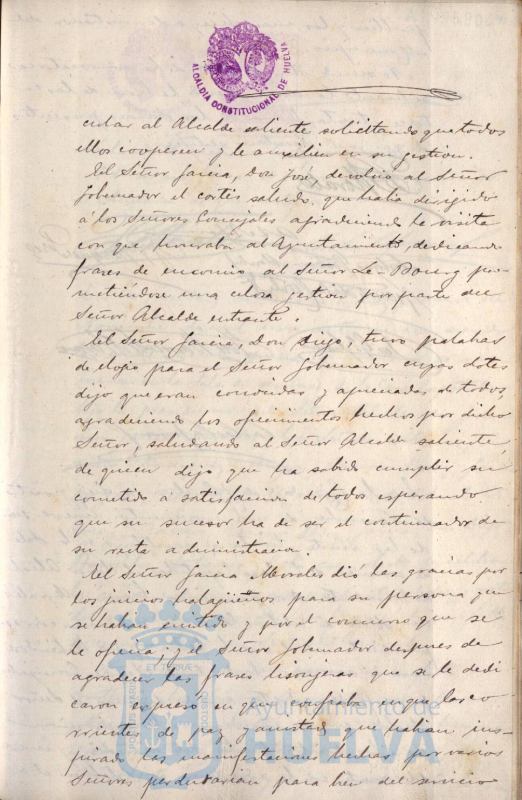 ALCALDIA CONSTITUCIONAL DE HUELVA
cular al Alcalde saliente solicitando que todos
ellos cooperen y le auxilien en su gestion.
El Señor Garcia, Don José devolvió al Señor
Gobernador el cortés saludo, que habia dirigido
á los Señores Concejales agradeciendo la visita
con que honraba al Ayuntamiento, dedicando
frases de encomio al Señor Le-Bourg pro-
metiéndose una celosa gestion por parte del
Señor Alcalde entrante.
El Señor Garcia, Don Diego, tuvo palabras
de elogio para el Señor Gobernador cuyas dotes
dijo que eran conocidas y apreciadas de todos,
agradeciendo los ofrecimientos hechos por dicho
Señor, saludando al Señor Alcalde saliente,
de quien dijo que ha sabido cumplir su
cometido á satisfacion de todos esperando
que su sucesor ha de ser el continuador de
su recta administracion.
El Señor Garcia Morales dió las gracias por
los juicios halagüeños para su persona que
se habian emitido y por el concurso que se
le ofrecia; y el Señor Gobernador despues de
agradecer las frases lisonjeras que se le dedi
caron expreso en que confiaba en que las co-
rrientes de paz y amistad que habian ins-
pirado las manifestaciones hechas por varios
Señores perdurarian para bien del servicio
Ayuntamiento de
HUELVA